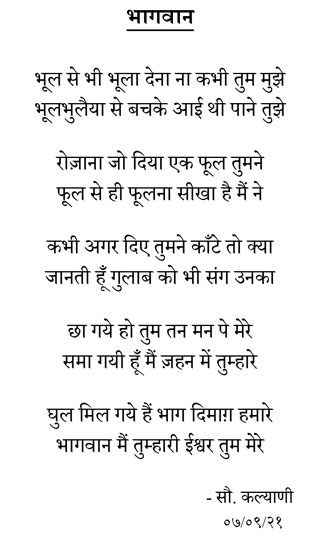 भागवान
भूल से भी भूला देना ना कभी तुम मुझे
भूलभुलैया से बचके आई थी पाने तुझे
रोज़ाना जो दिया एक फूल तुमने
फूल से ही फूलना सीखा है मैं ने
कभी अगर दिए तुमने काँटे तो क्या
जानती हूँ गुलाब को भी संग उनका
छा गये हो तुम तन मन पे मेरे
समा गयी हूँ मैं ज़हन में तुम्हारे
घुल मिल गये हैं भाग दिमाग़ हमारे
भागवान मैं तुम्हारी ईश्वर तुम मेरे
- सौ. कल्याणी
०७/०९/२१